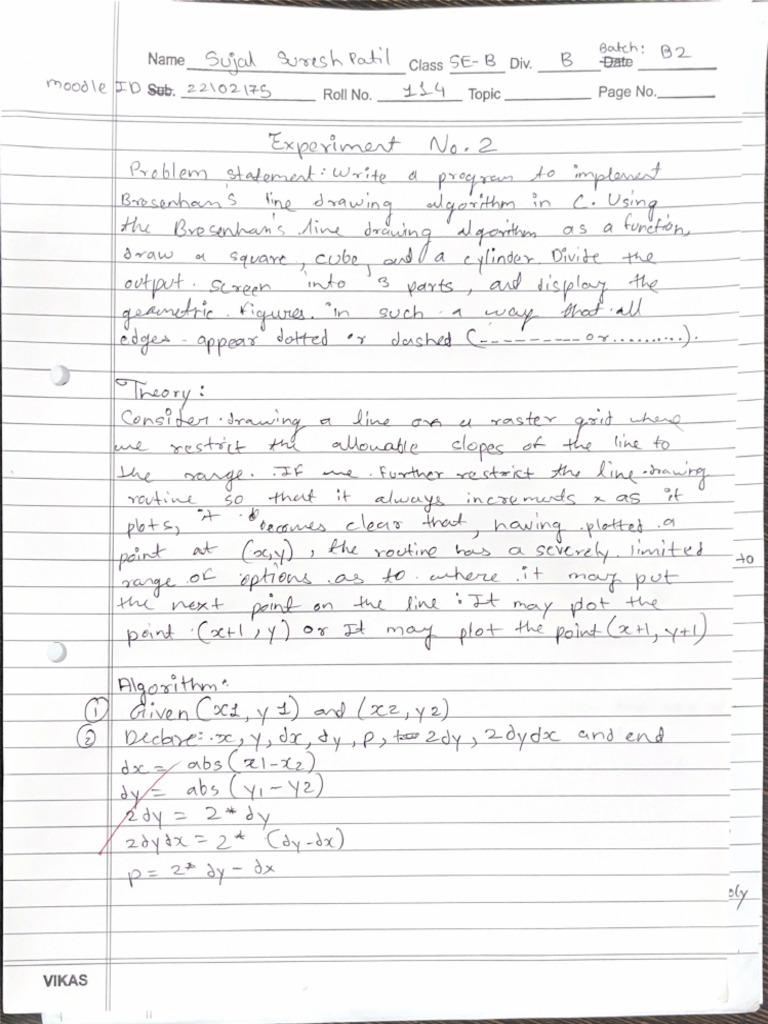 Name Sujal Suresh Patil Class SE-B Div. B Batch: B2 Date
moodle ID Sub. 22102175 Roll No. 114 Topic Page No.
Experiment No. 2
Problem statement: Write a program to implement
Bresenham's line drawing algorithm in C. Using
the Bresenham's line drawing algorithm as a function,
draw a square, cube, and a cylinder. Divide the
output screen into 3 parts, and display the
geometric figures in such a way that all
edges appear dotted or dashed (--------- or ..........).
Theory:
Consider drawing a line on a raster grid where
we restrict the allowable slopes of the line to
the range. If we further restrict the line-drawing
routine so that it always increments x as it
plots, it becomes clear that, having plotted a
point at (x,y), the routine has a severely limited
range of options as to where it may put
the next point on the line: It may plot the
point (x+1, y) or It may plot the point (x+1, y+1)
Algorithm:
① Given (x1, y1) and (x2, y2)
② Declare: x, y, dx, dy, p, 2dy, 2dydx and end
dx = abs (x1-x2)
dy = abs (y1-y2)
2dy = 2* dy
2dydx = 2* (dy-dx)
p = 2* dy - dx
to
VIKAS